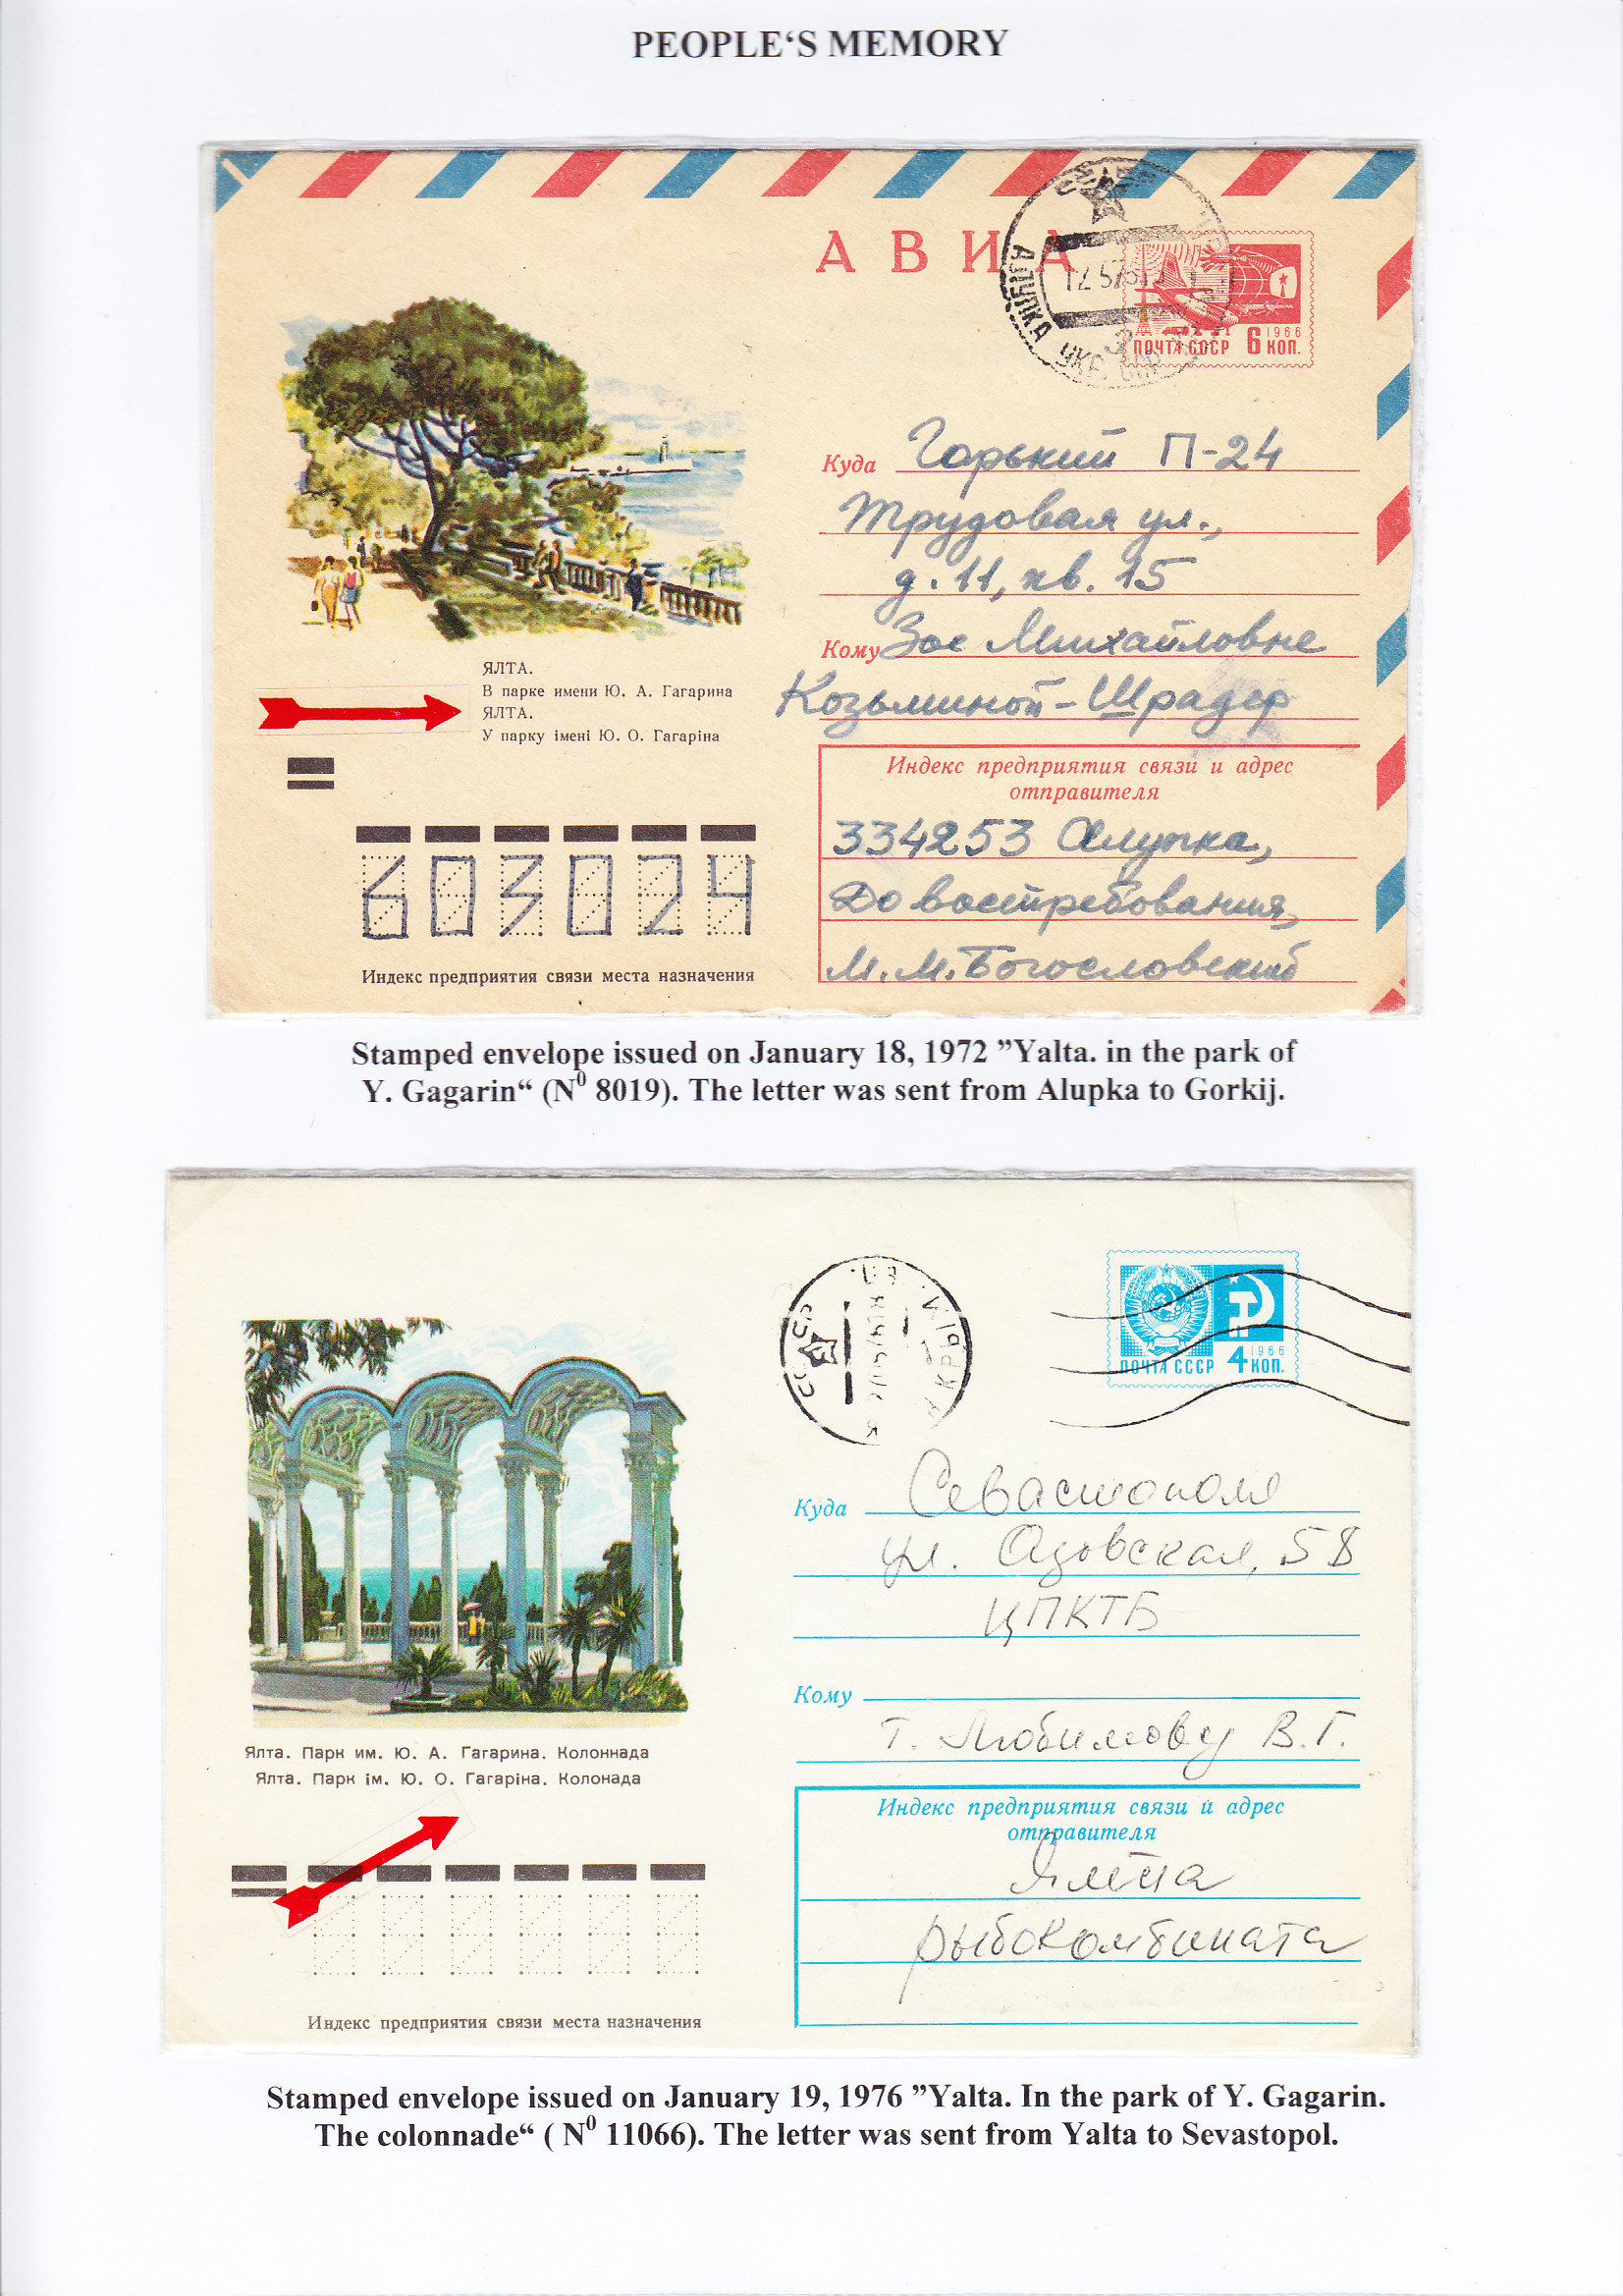 PEOPLE‘S MEMORY
АВИА
АЛУПКА УКР.
ПОЧТА СССР 6 КОП.
1966
Куда Горький П-24
Трудовая ул.,
д. 11, кв. 15
Кому Зое Михайловне
Козьминой-Шрадер
ЯЛТА.
В парке имени Ю. А. Гагарина
ЯЛТА.
У парку імені Ю. О. Гагаріна
Индекс предприятия связи и адрес
отправителя
334253 Алупка,
До востребования,
М. М. Богословский
603024
Индекс предприятия связи места назначения
Stamped envelope issued on January 18, 1972 ”Yalta. in the park of
Y. Gagarin“ (N⁰ 8019). The letter was sent from Alupka to Gorkij.
СССР
ПОЧТА СССР 4 КОП.
1966
Куда Севастополь
ул. Азовская, 58
ЦПКТБ
Кому
т. Любимову В.Г.
Ялта. Парк им. Ю. А. Гагарина. Колоннада
Ялта. Парк ім. Ю. О. Гагаріна. Колонада
Индекс предприятия связи и адрес
отправителя
Ялта
рыбокомбината
Индекс предприятия связи места назначения
Stamped envelope issued on January 19, 1976 ”Yalta. In the park of Y. Gagarin.
The colonnade“ ( N⁰ 11066). The letter was sent from Yalta to Sevastopol.